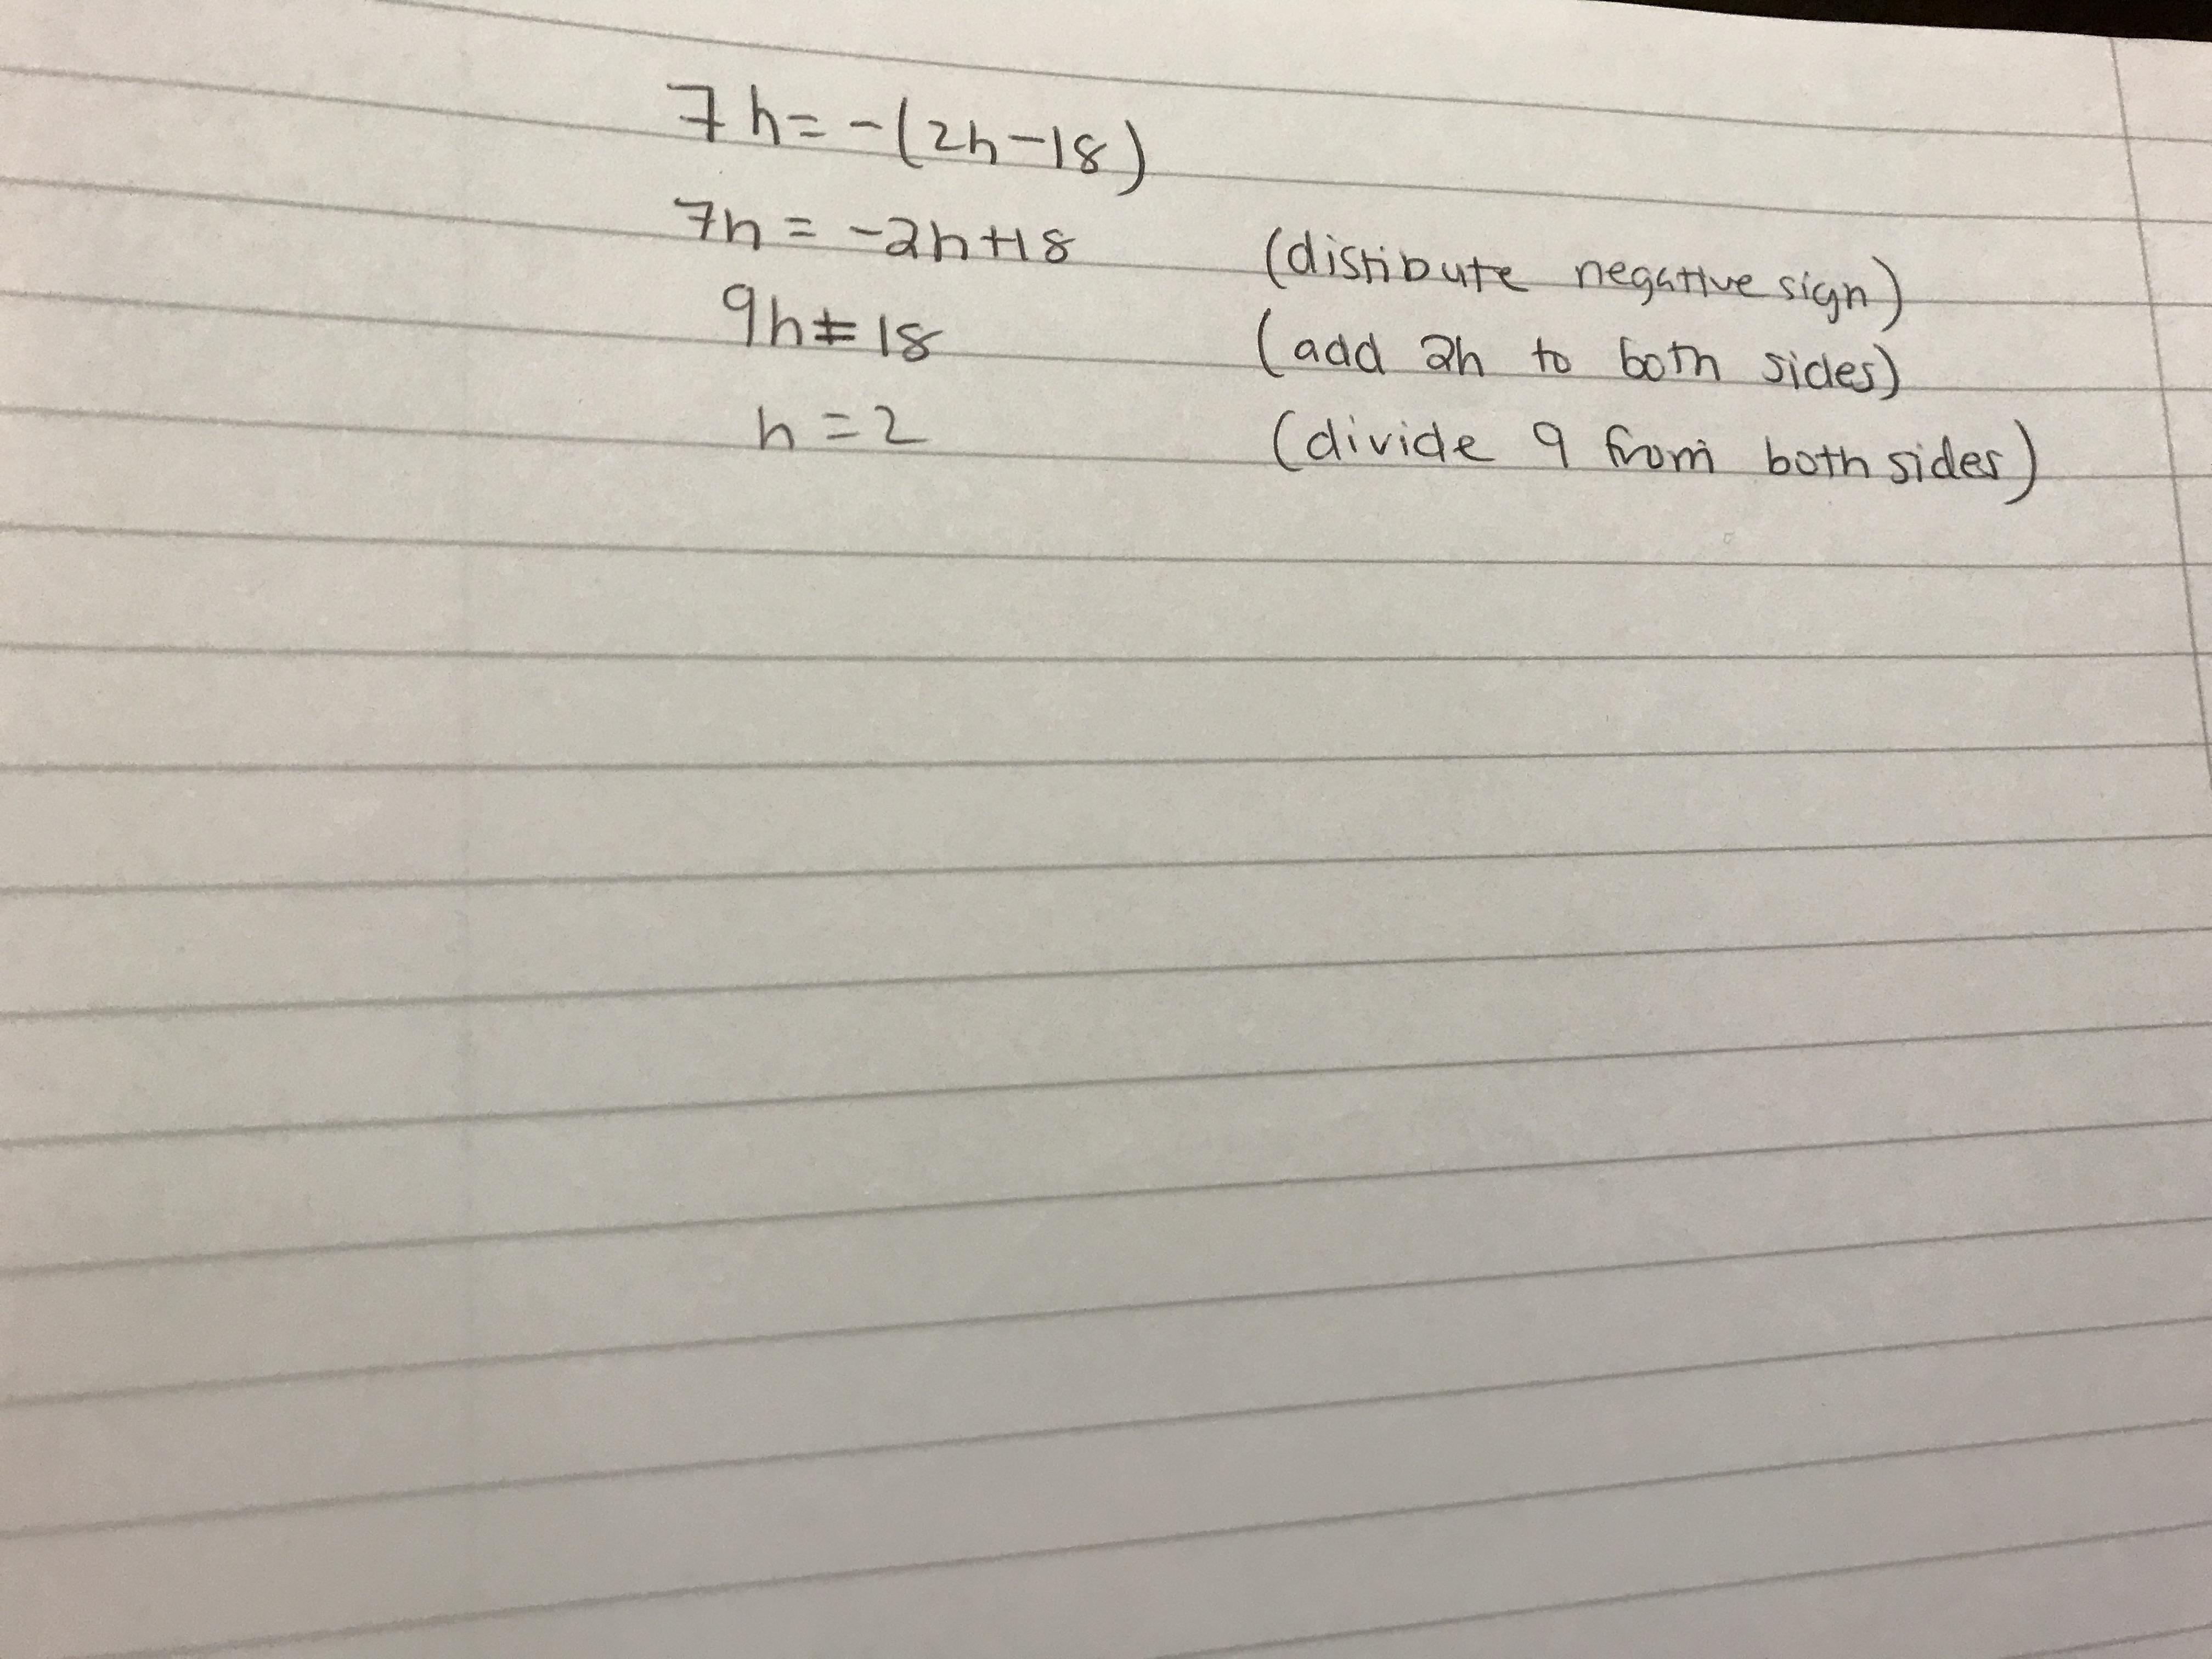 7h = -(2h-18)
7h = -2h+18 (distibute negative sign)
9h ≠ 18 (add 2h to both sides)
h = 2 (divide 9 from both sides)